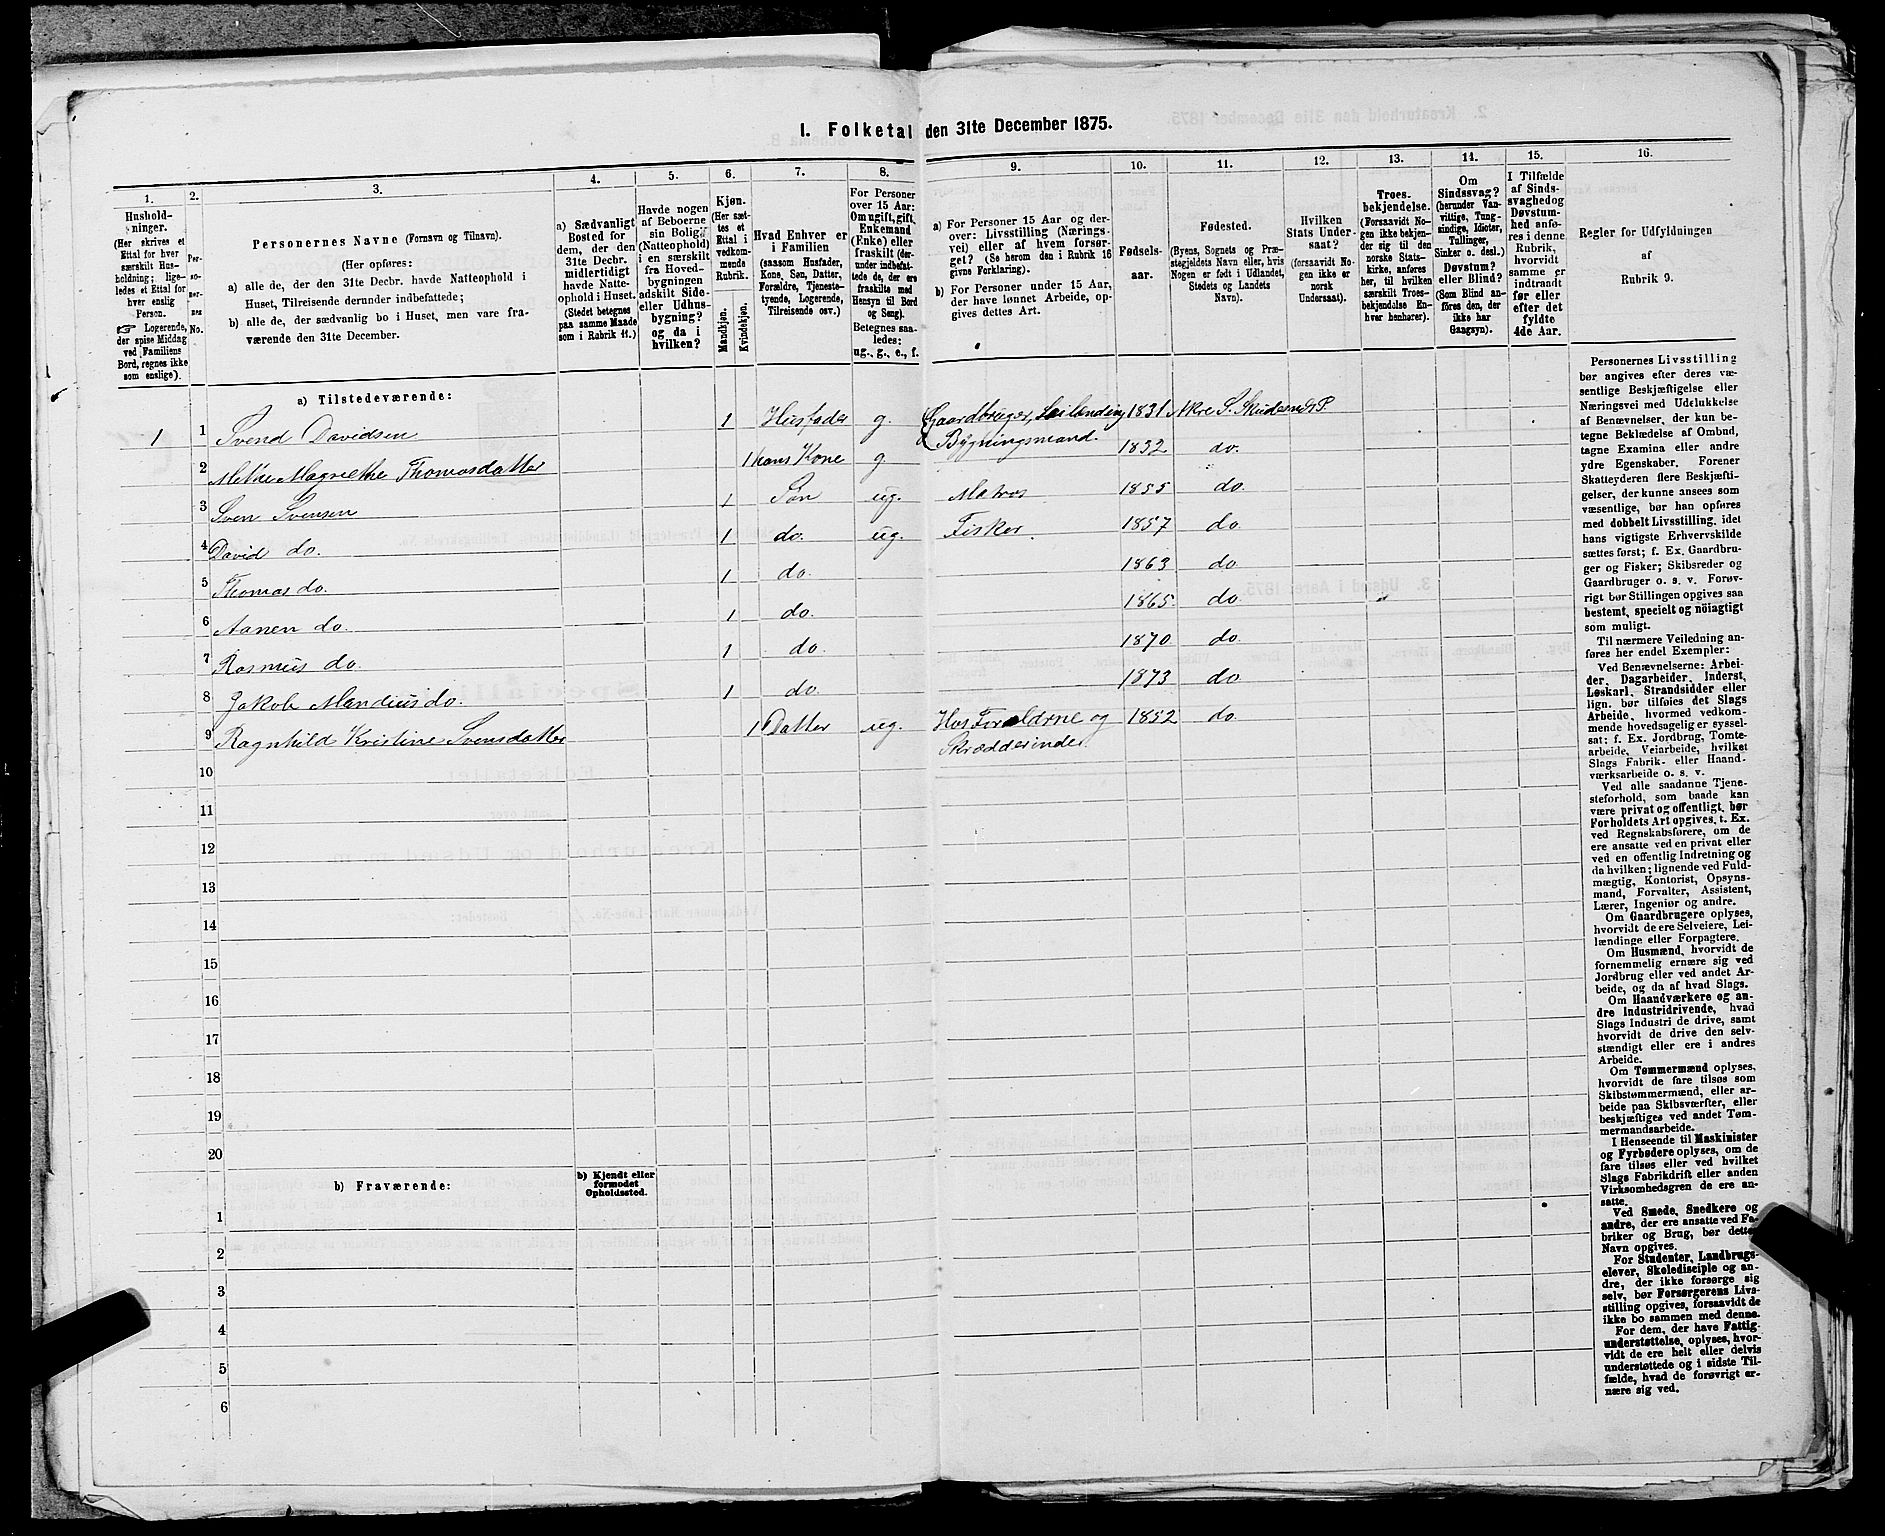 I. Folketal den 31te December 1875.
1. 2. 3. 4. 5. 6. 7. 8. 9. 10. 11. 12. 13. 14. 15. 16.
Hushold-
ninger.
(Her skrives et
Ettal for hver
særskilt Hus-
holdning; lige-
ledes et Ettal for
hver enslig
Person.
☞ Logerende,
der spise Middag
ved Familiens
Bord, regnes ikke
som enslige).
Per-
so-
ner-
nes
No.
Personernes Navne (Fornavn og Tilnavn).
(Her opføres:
a) alle de, der den 31te Decbr. havde Natteophold i
Huset, Tilreisende derunder indbefattede;
b) alle de, der sædvanlig bo i Huset, men vare fra-
værende den 31te December.
a) Sædvanligt
Bosted for
dem, der den
31te Decbr.
midlertidigt
havde Natte-
ophold i Huset.
(Stedet betegnes
paa samme Maade
som i Rubrik 11.)
Havde nogen
af Beboerne
sin Bolig
(Natteophold)
i en særskilt
fra Hoved-
bygningen
adskilt Side-
eller Udhus-
bygning?
og da i
hvilken?
Kjøn.
(Her sæt-
tes et
Ettal i
vedkom-
mende
Rubrik.
Mandkjøn.
Kvindekjøn.
Hvad Enhver er
i Familien
(saasom Husfader,
Kone, Søn, Datter,
Forældre, Tjeneste-
tyende, Logerende,
Tilreisende osv.)
For Personer
over 15 Aar:
Om ugift, gift,
Enkemand
(Enke) eller
fraskilt (der-
under indbefat-
tede de, der ere
fraskilte med
Hensyn til Bord
og Seng).
Betegnes saa-
ledes:
ug., g., e., f.
a) For Personer 15 Aar og der-
over: Livsstilling (Nærings-
vei) eller af hvem forsør-
get? (Se herom den i Rubrik 16
givne Forklaring).
b) For Personer under 15 Aar,
der have lønnet Arbeide, op-
gives dettes Art.
Fødsels-
aar.
Fødested.
(Byens, Sognets og Præ-
stegjeldets Navn eller, hvis
Nogen er født i Udlandet,
Stedets og Landets
Navn).
Hvilken
Stats Under-
saat?
(forsaavidt No-
gen ikke er
norsk
Undersaat).
Troes-
bekjendelse.
(Forsaavidt No-
gen ikke bekjen-
der sig til den
norske Stats-
kirke, anføres
her, til hvilken
særskilt Troes-
bekjendelse En-
hver henhører).
Om
Sindssvag?
(herunder Van-
vittige, Tung-
sindige, Idioter,
Tullinger,
Sinker o. desl.).
Døvstum?
eller Blind?
(Som Blind an-
føres den, der
ikke har
Gangsyn).
I Tilfælde
af Sinds-
svaghed og
Døvstum-
hed anfø-
res i denne
Rubrik,
hvorvidt
samme er
indtraadt
før eller
efter det
fyldte
4de Aar.
Regler for Udfyldningen
af
Rubrik 9.
a) Tilstedeværende:
1 1 Svend Davidsen 1 Husfader g. Gaardbruger, Leilending 1831 Akre S. Skudesnes P.
Bygningsmand.
2 Methe Magrethe Thomasdatter 1 hans Kone g. 1832 do.
3 Sven Svensen 1 Søn ug. Matros 1855 do.
4 David do. 1 do. ug. Fisker. 1857 do
5 Thomas do. 1 do. 1863 do
6 Aanen do. 1 do. 1865. do.
7 Rasmus do. 1 do. 1870 do.
8 Jakob Mandius do. 1 do. 1873 do
9 Ragnhild Kristine Svensdatter 1 Datter ug. Hos Forældrne og 1852 do.
Skrædderinde.
10
11
12
13
14
15
16
17
18
19
20
b) Fraværende:
b) Kjendt eller
formodet
Opholdssted.
1
2
3
4
5
6
Personernes Livsstilling
bør angives efter deres væ-
sentlige Beskjæftigelse eller
Næringsvei med Udelukkelse
af Benævnelser, der kun be-
tegne Beklædelse af Ombud,
tagne Examina eller andre
ydre Egenskaber. Forener
Skatteyderen flere Beskjæfti-
gelser, der kunne ansees som
væsentlige, bør han opføres
med dobbelt Livsstilling, idet
hans vigtigste Erhvervskilde
sættes først; f. Ex. Gaardbru-
ger og Fisker; Skibsreder og
Gaardbruger o. s. v. Forøv-
rigt bør Stillingen opgives saa
bestemt, specielt og nöiagtigt
som muligt.
Til nærmere Veiledning an-
føres her endel Exempler:
Ved Benævnelserne: Arbei-
der, Dagarbeider, Inderst,
Løskarl, Strandsidder eller
lign. bør tilføies det Slags
Arbeide, hvormed vedkom-
mende hovedsagelig er syssel-
sat; f. Ex. Jordbrug, Tomte-
arbeide, Veiarbeide, hvilket
Slags Fabrik- eller Haand-
værksarbeide o. s. v.
Ved alle saadanne Tjene-
steforhold, som baade kan
være privat og offentligt, bør
Forholdets Art opgives, t. Ex.
ved Regnskabsførere, om de
ere ansatte ved en privat eller
ved en offentlig Indretning og
da hvilken; lignende ved Fuld-
mægtig, Kontorist, Opsyns-
mand, Forvalter, Assistent,
Lærer, Ingeniør og andre.
Om Gaardbrugere oplyses,
hvorvidt de ere Selveiere, Lei-
lændinge eller Forpagtere.
Om Husmænd, hvorvidt de
fornemmelig ernære sig ved
Jordbrug eller ved andet Ar-
beide, og da af hvad Slags.
Om Haandværkere og an-
dre Industridrivende, hvad
Slags Industri de drive, samt
hvorvidt de drive den selv-
stændigt eller ere i andres
Arbeide.
Om Tømmermænd oplyses,
hvorvidt de fare tilsøs som
Skibstømmermænd, eller ar-
beide paa Skibsværfter, eller
beskjæftiges ved andet Tøm-
mermandsarbeide.
I Henseende til Maskinister
og Fyrbødere oplyses, om de
fare tilsøs eller ved hvilket
Slags Fabrikdrift eller anden
Virksomhedsgren de ere an-
satte.
Ved Smede, Snedkere og
andre, der ere ansatte ved Fa-
briker og Brug, bør dettes
Navn opgives.
For Studenter, Landbrugs-
elever, Skoledisciple og an-
dre, der ikke forsørge sig
selv, bør Forsørgerens Livs-
stilling opgives, forsaavidt de
ikke bo sammen med denne.
For dem, der have Fattig-
understøttelse, oplyses, hvor-
vidt de ere helt eller delvis
understøttede og i sidste Til-
fælde, hvad de forøvrigt er-
nære sig ved.